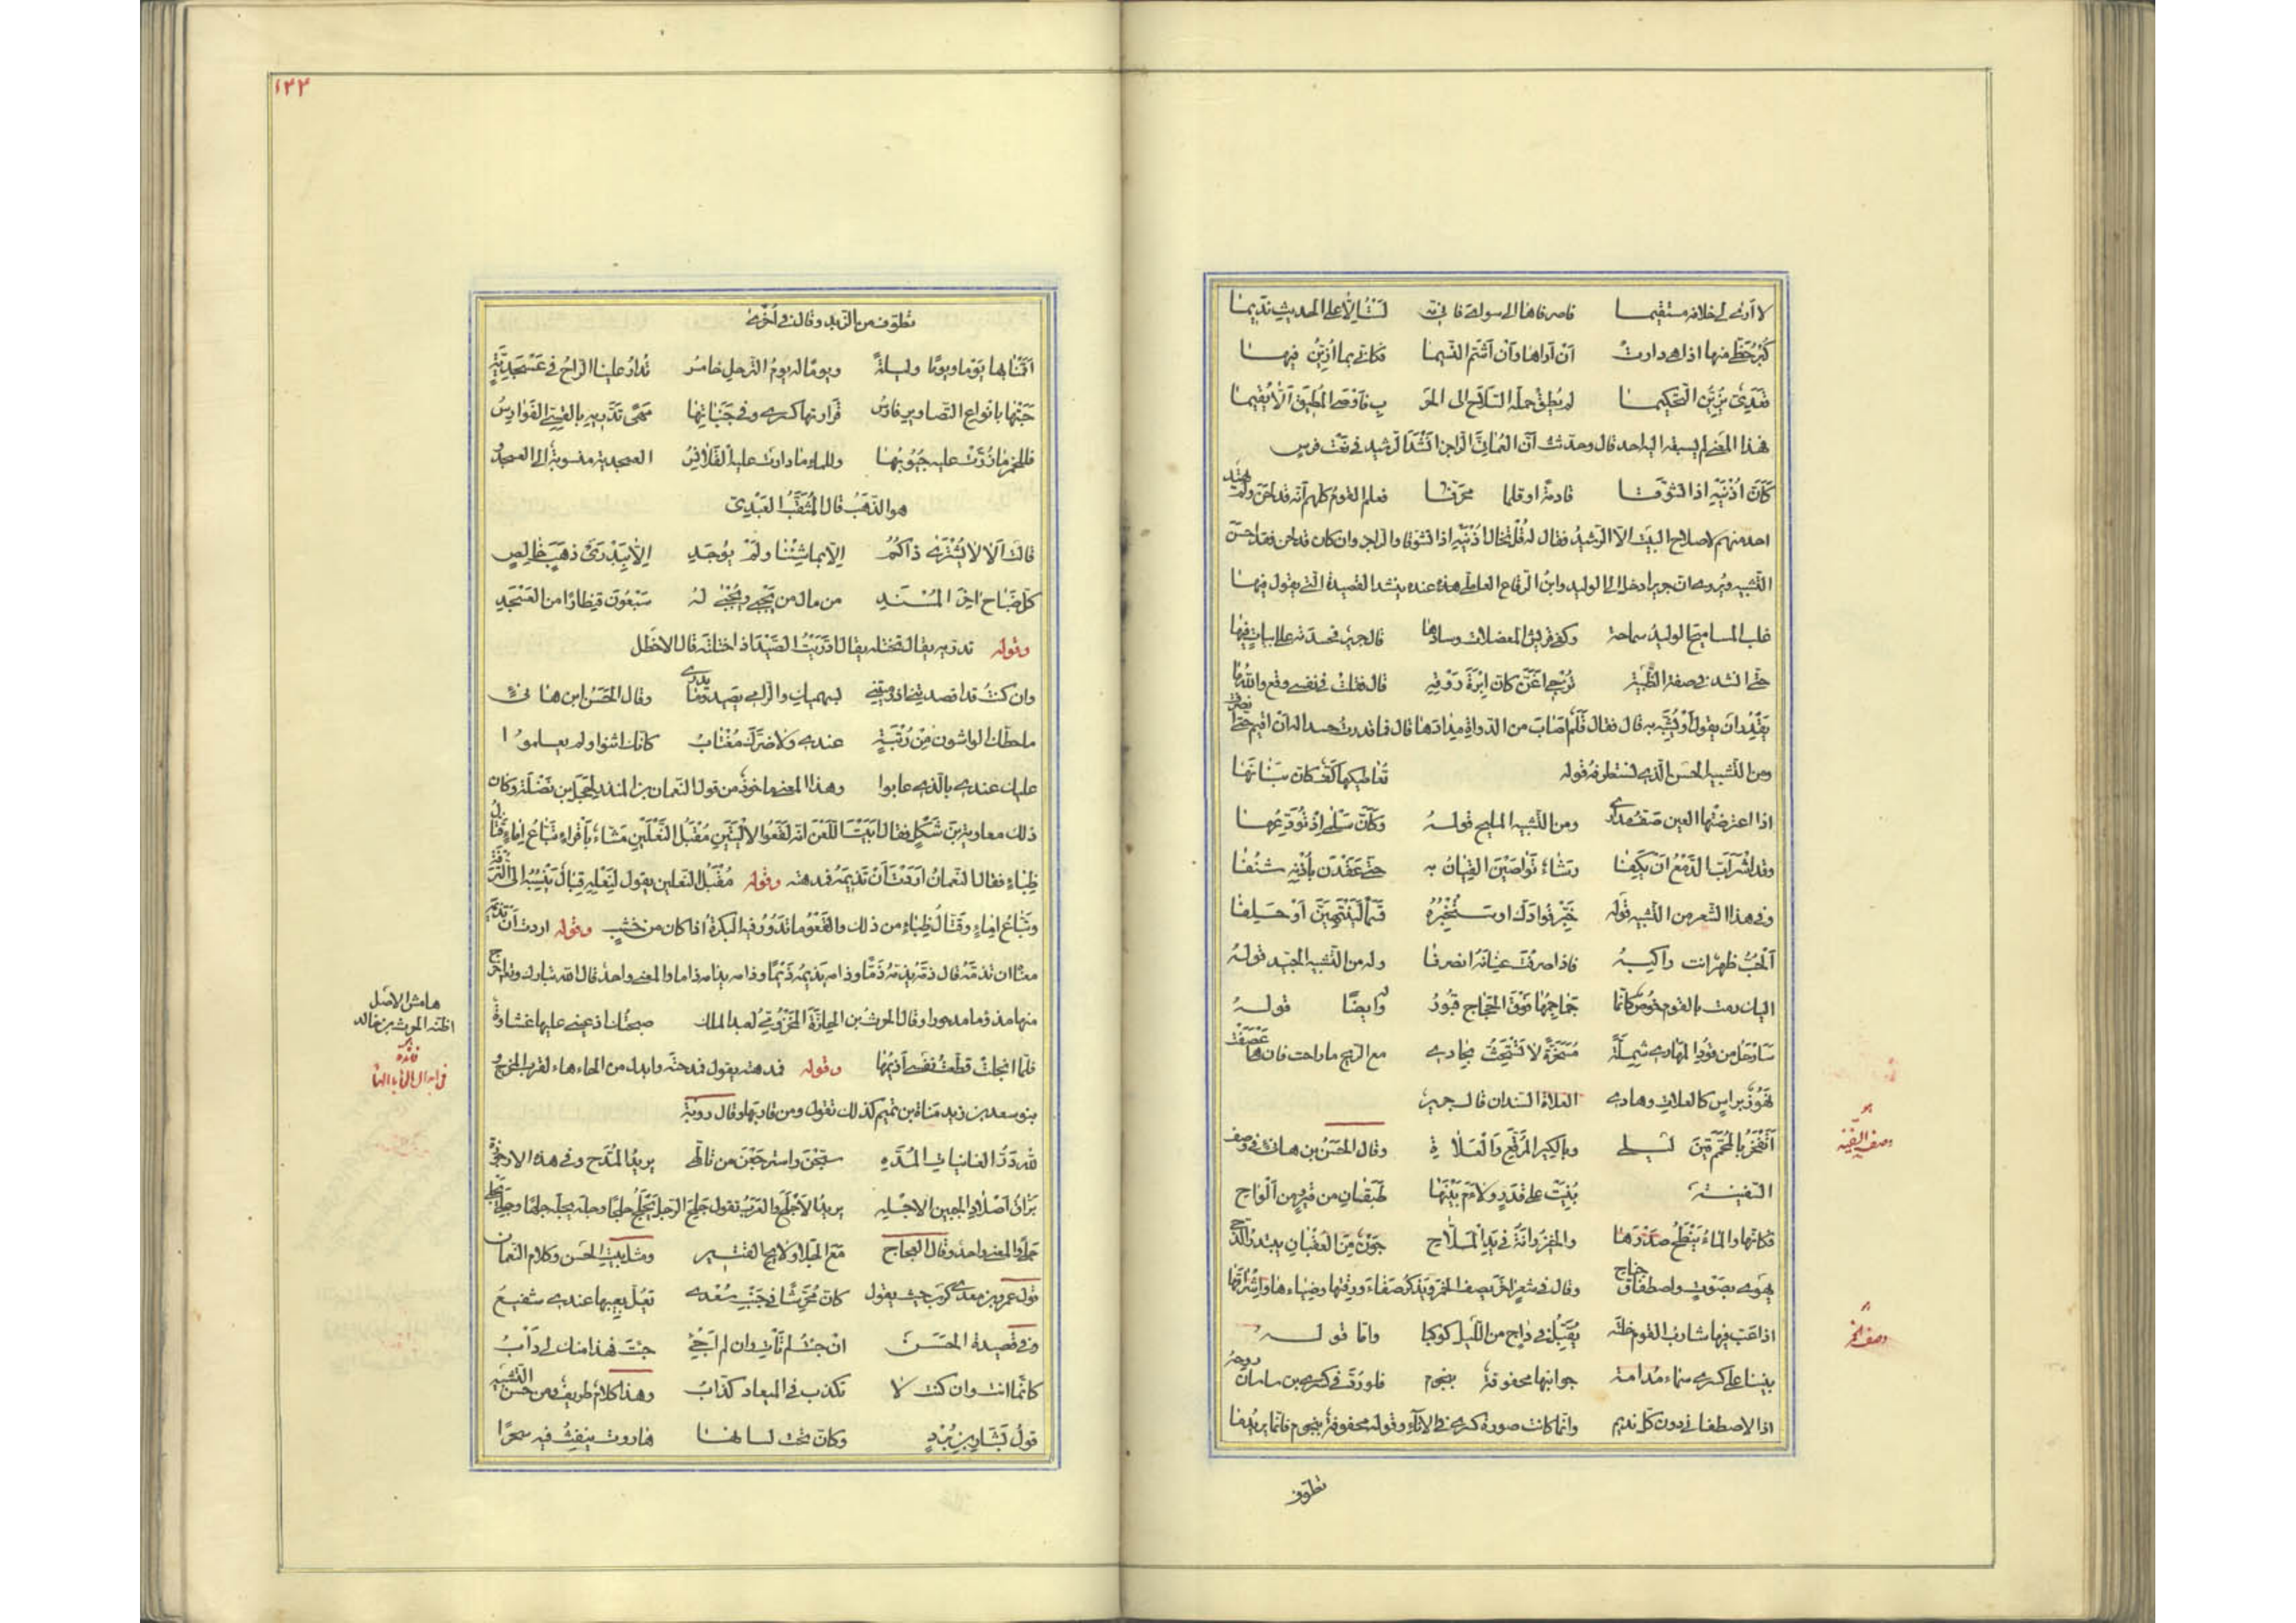 لا أرى لي خلافه مستقيما فاصرفاها الى سواى فانى لست الا على الحديث نديما
كبر حظى منها اذا هى دارت أن أراها وأن أشتم النسيما فكانى بما ازين منها
قعدى يزين التحكيما لم يطق حمله السلاح الى الحر ب فأوصى المطيق ألا يقيما
هذا المعنى لم يسبقه اليه احد قال وحدثت أن العمانى الراجز انشد الرشيد فى نعت فرس
كأن اذنيه اذا تشوفا قادمة او قلما محرفا فعلم القوم كلهم أنه قد لحن ولم يهتد
احد منهم لاصلاح البيت الا الرشيد فقال له قل تخال اذنيه اذا تشوفا والراجز وان كان قد لحن فقد احسن
التشبيه ويروى ان جريرا دخل الى الوليد وابن الرقاع العاملى عنده ينشد القصيدة التى يقول فيها
غلب المساميح الوليد سماحة وكفى قريش المعضلات وسادها قال جرير فحسدته على ابيات فيها
حتى انشد فى صفة الظبية تزجى اغن كأن ابرة روقه قال فقلت فى نفسى وقع والله ما
يقدر ان يقول أو يشبه به قال فقال قلم اصاب من الدواة مدادها قال فما قدرت حسدا له أن اقيم حتى انصرفت
ومن التشبيه الحسن الذى نستطرفه قوله تعاطيكها كف كأن بنانها
اذا اعترضتها العين صف مدارى ومن التشبيه المليح قوله وكأن سلمى اذ تودعها
وقد اشرأب الدمع أن يكفا رشأ تواصين القيان به حتى عقدن بأذنه شنفا
وفى هذا الشعر من التشبيه قوله خبز فؤادك او ستخبره قسما لينتهين أو حلفا
ألحب ظهر انت راكبه فاذا صرفت عنانه انصرفا وله من التشبيه الجيد قوله
اليك رمت بالقوم خوص كأنما جماجمها فوق الحجاج قبور وله ايضا قوله
سأرحل من قود المهارى شملة مسخرة لا تستحث بحادى مع الريح ما راحت فان هى عصفت
نهوز برأس كالعلاة وهادى العلاة السندان قال جرير
أيفخر بالمحمم قين ليلى وبالكير المرقع والعلاة وقال الحسن بن هانئ فى وصف
السفينة بنيت على قدر ولاءم بينها طبقان من قير ومن ألواح
فكأنها والماء ينطح صدرها والخيزرانة فى يد الملاح جون من العقبان يبتدر الدجى
يهوى بصوت واصطفاق جناح وقال فى شعر آخر يصف الخمر ويذكر صفاءه ورقتها وضياءها واشراقها
اذا عب فيها شارب القوم خلته يقبل فى داج من الليل كوكبا وأما قوله
بنينا على كسرى سماء مدامة جوانبها محفوفة بنجوم فلو رد فى كسرى بن ساسان روحه
اذا لاصطفانى دون كل نديم وانما كانت صورة كسرى فى الاناء وقوله محفوفة بنجوم فانما يريد ما
تطوق
وصف السفينة
وصف الخمر
١٢٢
تطوق من الزبد وقال فى أخرى
أقمنا بها يوما ويوما وليلة ويوما له يوم الترحل خامس تدار علينا الراح فى عسجدية
حبتها بانواع التصاوير فارس قرارتها كسرى وفى جنباتها مهى تدريه بالقسى الفوارس
فللخمر ما زرت عليه جيوبها وللماء ما دارت عليه القلانس العسجدية منسوبة الى العسجد
هو الذهب قال المثقب العبدى
قالت ألا لا يشترى ذاكم الا بما شئنا ولم يوجد الا ببدرى ذهب خالص
كل صباح آخر المسند من مال من يجبى ويجبى له سبعون قنطارا من العسجد
وقوله تدريه يقال تختله يقال ادريت الصيد اذا ختلته قال الاخطل
وان كنت قد اقصدتنى اذ رميتنى بسهميك والرامى يصيد وما يدرى وقال الحسن ابن هانئ
ما حطك الواشون من رتبة عندى ولا ضرك مغتاب كانك اثنوا ولم يعلموا
عليك عندى بالذى عابوا وهذا المعنى ماخوذ من قول النعمان بن المنذر لحجل بن نضلة وكان
ذلك معاوية بن شكل فقال أبيت اللعن انه لقعو الاليتين مقبل النعلين مشاء بأقراء تباع إماء قتال
ظباء فقال النعمان اردت أن تذيمه فمدهته وقوله مقبل النعلين يقول لنعليه قبال ينسبه الى الترفة
وتباع إماء وقتال ظباء من ذلك والقعو ما تدور فيه البكرة اذا كان من خشب وقوله اردت أن تذيمه
معناه ان تذمه قال ذمه يذمه ذما وذامه يذيمه ذيما وذامه يذامه ذاما والمعنى واحد قال الله تبارك وتعالى اخرج
منها مذؤما مدحورا وقال الحرث بن المخزومى لعبد الملك صحبتك اذ عينى عليها غشاوة
فلما انجلت قطعت نفسى أذيمها وقوله فمدهته يقول فمدحته وابدل من الحاء هاء لقرب المخرج و
بنو سعد بن زيد مناة بن تميم كذلك تقول ومن قاربها وقال روبة
لله در الغانيات المده سبحن واسترجعن من تألهى يريد المدح وفى هذه الارجوزة
براق أصلاد الجبين الاجله يريد الاجلح والعرب تقول جلح الرجل يجلح جلحا وجله يجله جلها وجلى يجلى
جلى والمعنى واحد وقال العجاج مع الجلا ولائح القتير ومثل بيت الحسن وكلام النعمان
قول عمرو بن معدى كرب حيث يقول كأن محرشا فى جنب سعدى تعل يعيبها عندى شفيع
وفى قصيدة الحسن ان جئت لم تأت وان لم اجئ جئت فهذا منك لى دأب
كأنما انت وان كنت لا تكذب فى الميعاد كذاب وهذا كلام طريف ومن حسن التشبيه
قول بشار بن برد وكأن تحت لسانها هاروت ينفث فيه سحرا
هامش الاصل
اظنه الحرث بن خالد
فائدة